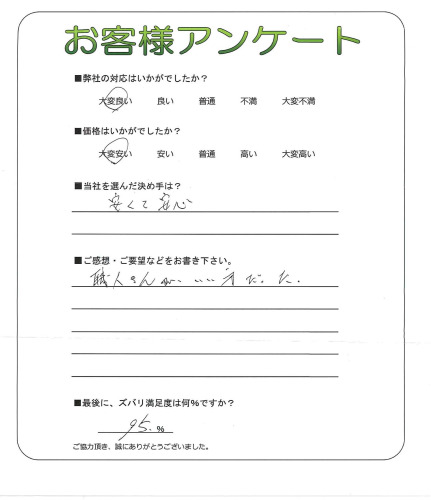 お客様アンケート
■弊社の対応はいかがでしたか？
大変良い 良い 普通 不満 大変不満
■価格はいかがでしたか？
大変安い 安い 普通 高い 大変高い
■当社を選んだ決め手は？
安くて安心
■ご感想・ご要望などをお書き下さい。
職人さんが、いい方だった。
■最後に、ズバリ満足度は何％ですか？
95.％
ご協力頂き、誠にありがとうございました。